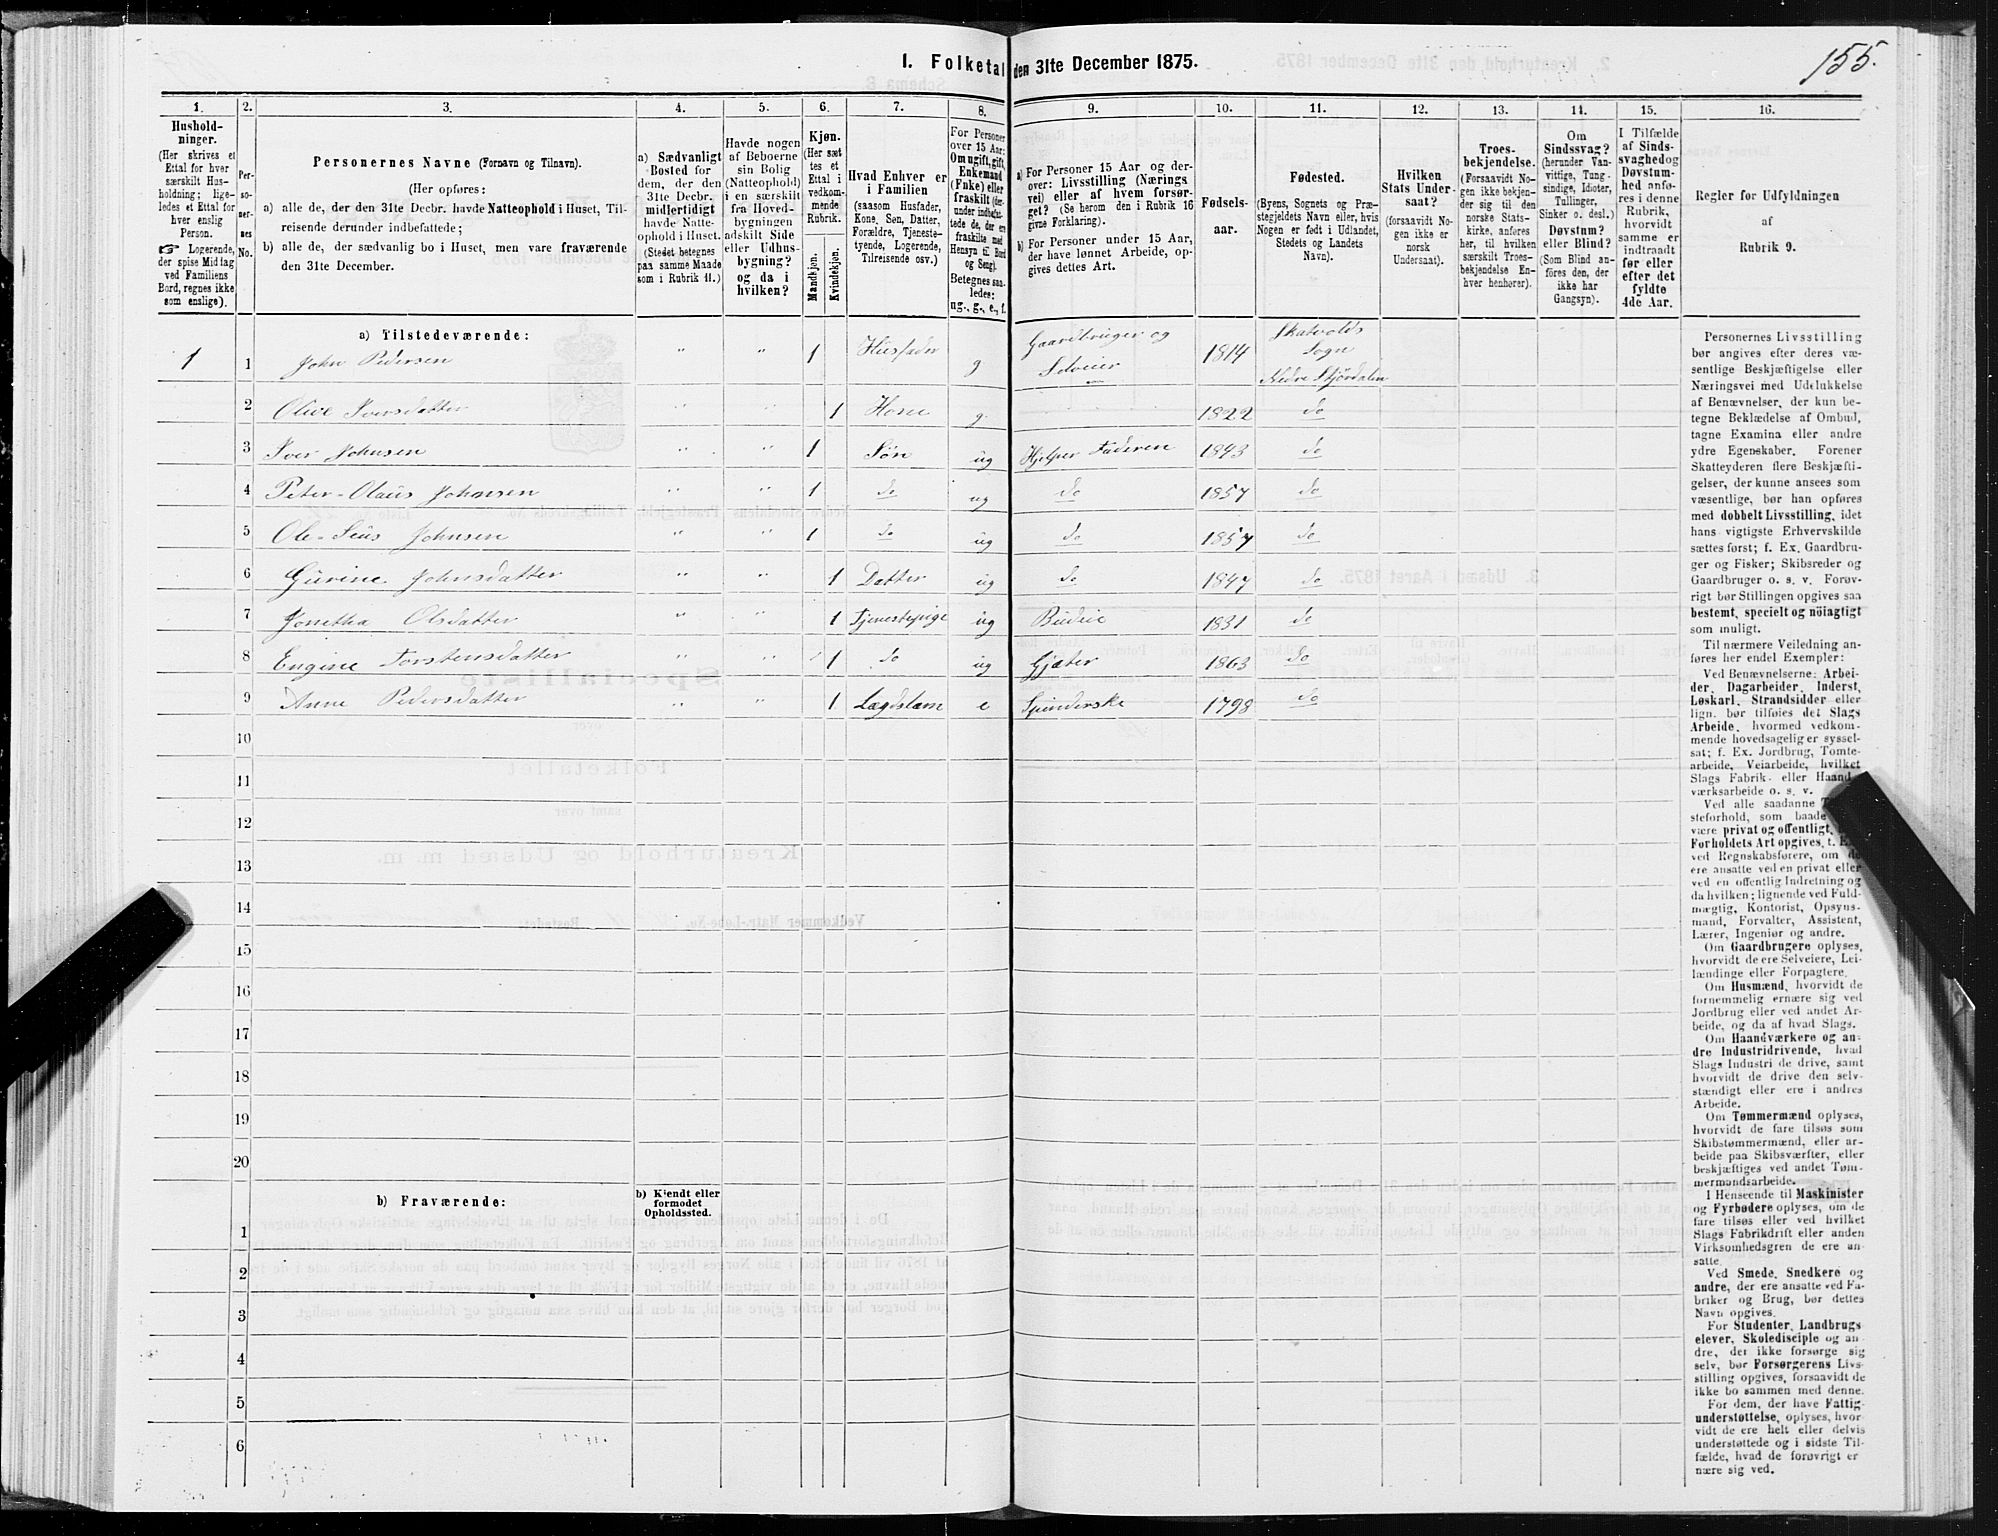 155.
I. Folketal den 31te December 1875.
1. 2. 3. 4. 5. 6. 7. 8. 9. 10. 11. 12. 13. 14. 15. 16.
Hushold-
ninger.
(Her skrives et
Ettal for hver
særskilt Hus-
holdning; lige-
ledes et Ettal for
hver enslig
Person.
☞ Logerende,
der spise Middag
ved Familiens
Bord, regnes ikke
som enslige).
Per-
so-
ner-
nes
No.
Personernes Navne (Fornavn og Tilnavn).
(Her opføres:
a) alle de, der den 31te Decbr. havde Natteophold i Huset, Til-
reisende derunder indbefattede;
b) alle de, der sædvanlig bo i Huset, men vare fraværende
den 31te December.
a) Sædvanligt
Bosted for
dem, der den
31te Decbr.
midlertidigt
havde Natte-
ophold i Huset.
(Stedet betegnes
paa samme Maade
som i Rubrik 11.)
Havde nogen
af Beboerne
sin Bolig
(Natteophold)
i en særskilt
fra Hoved-
bygningen
adskilt Side
eller Udhus-
bygning?
og da i
hvilken?
Kjøn.
(Her sæt
tes et
Ettal i
vedkom-
mende
Rubrik.
Mandkjøn.
Kvindekjøn.
Hvad Enhver er
i Familien
(saasom Husfader,
Kone, Søn, Datter,
Forældre, Tjeneste-
tyende, Logerende,
Tilreisende osv.)
For Personer
over 15 Aar:
Om ugift, gift,
Enkemand
(Enke) eller
fraskilt (der-
under indbefat-
tede de, der ere
fraskilte med
Hensyn til Bord
og Seng).
Betegnes saa-
ledes:
ug., g., e., f.
a) For Personer 15 Aar og der-
over: Livsstilling (Nærings
vei) eller af hvem forsør-
get? (Se herom den i Rubrik 16
givne Forklaring).
b) For Personer under 15 Aar,
der have lønnet Arbeide, op-
gives dettes Art.
Fødsels-
aar.
Fødested.
(Byens, Sognets og Præ-
stegjeldets Navn eller, hvis
Nogen er født i Udlandet,
Stedets og Landets
Navn).
Hvilken
Stats Under-
saat?
(forsaavidt No-
gen ikke er
norsk
Undersaat).
Troes-
bekjendelse.
(Forsaavidt No-
gen ikke bekjen-
der sig til den
norske Stats-
kirke, anføres
her, til hvilken
særskilt Troes-
bekjendelse En-
hver henhører).
Om
Sindssvag?
(herunder Van-
vittige, Tung-
sindige, Idioter,
Tullinger,
Sinker o. desl.)
Døvstum?
eller Blind?
(Som Blind an-
føres den, der
ikke har
Gangsyn).
I Tilfælde
af Sinds-
svaghed og
Døvstum-
hed anfø-
res i denne
Rubrik,
hvorvidt
samme er
indtraadt
før eller
efter det
fyldte
4de Aar.
Regler for Udfyldningen
af
Rubrik 9.
a) Tilstedeværende:
1 1 John Pedersen " " 1 Husfader g Gaardbruger og Selveier 1814 Skatvolds Sogn Nedre Stjördalen
2 Olive Iversdatter " " 1 Kone g. 1822 do
3 Iver Johnsen " " 1 Søn ug Hjelper Faderen 1843 do
4 Peter-Olaus Johnsen " " 1 do ug do 1857 do
5 Ole-Sius Johnsen " " 1 do ug do 1857 do
6 Gurine Johnsdatter " " 1 Datter ug do 1847 do
7 Jonetha Olsdatter " " 1 Tjenestepige ug Budeie 1831 do
8 Engine Torstensdatter " " 1 do ug Gjæter 1863 do
9 Anne Pedersdatter " " 1 Lægdslem e Spinderske 1798 do
10
11
12
13
14
15
16
17
18
19
20
b) Fraværende:
b) Kjendt eller
formodet
Opholdssted.
1
2
3
4
5
6
Personernes Livsstilling
bør angives efter deres væ-
sentlige Beskjæftigelse eller
Næringsvei med Udelukkelse
af Benævnelser, der kun be-
tegne Beklædelse af Ombud,
tagne Examina eller andre
ydre Egenskaber. Forener
Skatteyderen flere Beskjæfti-
gelser, der kunne ansees som
væsentlige, bør han opføres
med dobbelt Livsstilling, idet
hans vigtigste Erhvervskilde
sættes først; f. Ex. Gaardbru-
ger og Fisker; Skibsreder og
Gaardbruger o. s. v. Forøv-
rigt bør Stillingen opgives saa
bestemt, specielt og nöiagtigt
som muligt.
Til nærmere Veiledning an-
føres her endel Exempler:
Ved Benævnelserne: Arbei-
der, Dagarbeider, Inderst,
Løskarl, Strandsidder eller
lign. bør tilføies det Slags
Arbeide, hvormed vedkom-
mende hovedsagelig er syssel-
sat; f. Ex. Jordbrug, Tomte-
arbeide, Veiarbeide, hvilket
Slags Fabrik- eller Haand-
værksarbeide o. s. v.
Ved alle saadanne
steforhold, som baade
være privat og offentligt,
Forholdets Art opgives, t.
ved Regnskabsførere, om de
ere ansatte ved en privat eller
ved en offentlig Indretning og
da hvilken; lignende ved Fuld-
mægtig, Kontorist, Opsyns-
mand, Forvalter, Assistent,
Lærer, Ingeniør og andre.
Om Gaardbrugere oplyses,
hvorvidt de ere Selveiere, Lei-
lændinge eller Forpagtere.
Om Husmænd, hvorvidt de
fornemmelig ernære sig ved
Jordbrug eller ved andet Ar-
beide, og da af hvad Slags.
Om Haandværkere og an-
dre Industridrivende, hvad
Slags Industri de drive, samt
hvorvidt de drive den selv-
stændigt eller ere i andres
Arbeide.
Om Tømmermænd oplyses,
hvorvidt de fare tilsøs som
Skibstømmermænd, eller ar-
beide paa Skibsværfter, eller
beskjæftiges ved andet Tøm-
mermandsarbeide.
I Henseende til Maskinister
og Fyrbødere oplyses, om de
fare tilsøs eller ved hvilket
Slags Fabrikdrift eller anden
Virksomhedsgren de ere an-
satte.
Ved Smede, Snedkere og
andre, der ere ansatte ved Fa-
briker og Brug, bør dettes
Navn opgives.
For Studenter, Landbrugs
elever, Skoledisciple og an-
dre, der ikke forsørge sig
selv, bør Forsørgerens Livs-
stilling opgives, forsaavidt de
ikke bo sammen med denne.
For dem, der have Fattig-
understøttelse, oplyses, hvor-
vidt de ere helt eller delvis
understøttede og i sidste Til-
fælde, hvad de forøvrigt er
nære sig ved.